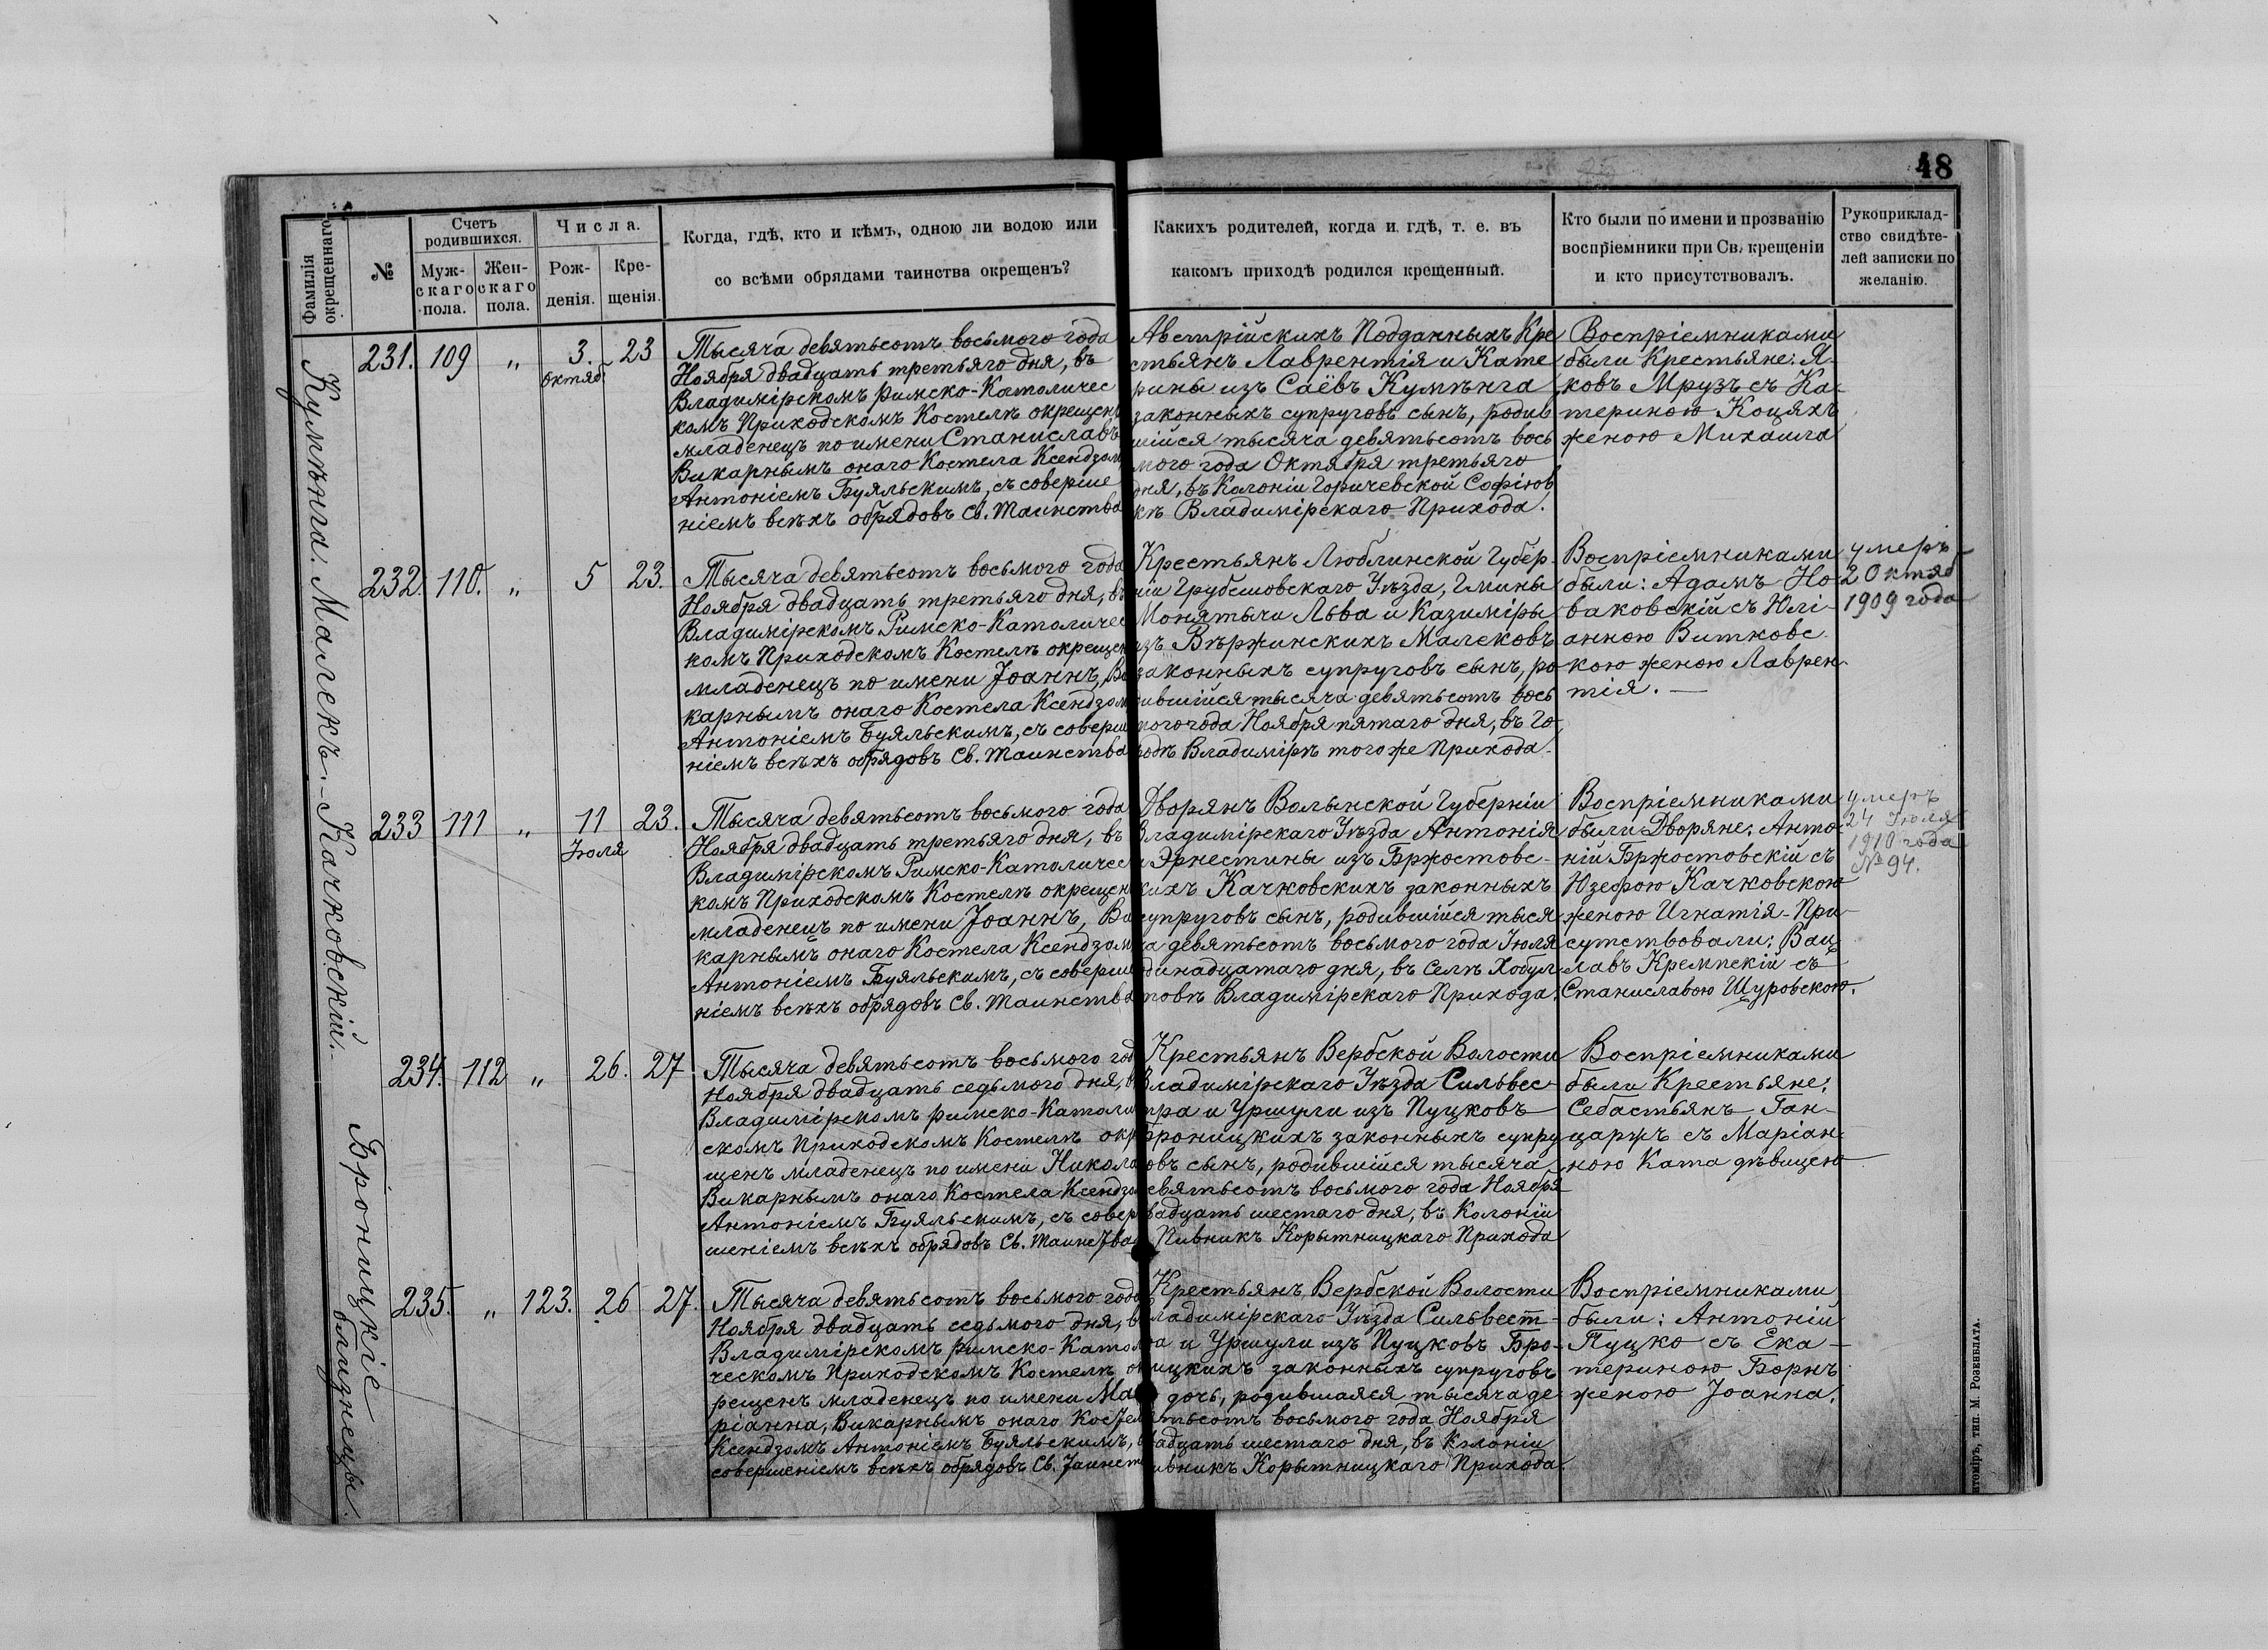 48
Фамилія окрещеннаго
№
Счетъ родившихся.
Муж-
скаго
пола.
Жен-
скаго
пола.
Числа.
Рож-
денія.
Кре-
щенія.
Когда, гдѣ, кто и кѣмъ, одною ли водою или
со всѣми обрядами таинства окрещенъ?
Какихъ родителей, когда и гдѣ, т. е. въ
какомъ приходѣ родился крещенный.
Кто были по имени и прозванію
воспріемники при Св. крещеніи
и кто присутствовалъ.
Рукоприклад-
ство свидѣте-
лей записки по
желанію.
Кумѣнга.
231. 109 „ 3. Октяб. 23
Тысяча девятьсотъ восьмого года
Ноября двадцать третьяго дня, въ
Владимірскомъ Римско-Католичес
комъ Приходскомъ Костелѣ окрещенъ
младенецъ по имени Станиславъ
Викарнымъ онаго Костела Ксендзомъ
Антоніемъ Буяльскимъ, съ соверше
ніемъ всѣхъ обрядовъ Св. Таинства
Австрійскихъ Подданныхъ Кре
стьянъ Лаврентія и Кате
рины изъ Саёвъ Кумѣнга
законныхъ супруговъ сынъ, родив
шійся тысяча девятьсотъ вось
мого года Октября третьяго
дня, въ Колоніи Горичевской Софіов
кѣ Владимірскаго Прихода.
Воспріемниками
были Крестьяне: Я-
ковъ Мрузъ съ Ка-
териною Коцяхъ
женою Михаила
Малекъ.
232. 110. „ 5 23.
Тысяча девятьсотъ восьмого года
Ноября двадцать третьяго дня, въ
Владимірскомъ Римско-Католичес
комъ Приходскомъ Костелѣ окрещенъ
младенецъ по имени Іоаннъ, Ви
карнымъ онаго Костела Ксендзомъ
Антоніемъ Буяльскимъ, съ соверше
ніемъ всѣхъ обрядовъ Св. Таинства
Крестьянъ Люблинской Губер-
ніи Грубешовскаго Уѣзда, Гмины
Монятычи Льва и Казиміры
изъ Вѣржинскихъ Малековъ
законныхъ супруговъ сынъ, ро
дившійся тысяча девятьсотъ вось
мого года Ноября пятаго дня, въ Го-
родѣ Владимірѣ того же Прихода.
Воспріемниками
были: Адамъ Но-
ваковскій съ Юлі-
анною Витковс-
кою женою Лаврен-
тія. —
умеръ
2 Октяб
1909 года
Качковскій.
233 111 „ 11 Іюля 23.
Тысяча девятьсотъ восьмого года
Ноября двадцать третьяго дня, въ
Владимірскомъ Римско-Католичес
комъ Приходскомъ Костелѣ окрещенъ
младенецъ по имени Іоаннъ, Ви
карнымъ онаго Костела Ксендзомъ
Антоніемъ Буяльскимъ, съ соверше
ніемъ всѣхъ обрядовъ Св. Таинства
Дворянъ Волынской Губерніи
Владимірскаго Уѣзда Антонія
и Эрнестины изъ Бржостовс-
кихъ Качковскихъ законныхъ
супруговъ сынъ, родившійся тыся
ча девятьсотъ восьмого года Іюля
одинадцатаго дня, въ Селѣ Хобул-
товѣ Владимірскаго Прихода.
Воспріемниками
были Дворяне: Анто-
ній Бржостовскій съ
Юзефою Качковскою
женою Игнатія - При-
сутствовали: Вац-
лавъ Кремпскій съ
Станиславою Щуровскою.
умеръ
24 Іюля
1910 года
№ 94.
Броницкіе близнецы.
234. 112 „ 26. 27
Тысяча девятьсотъ восьмого год
Ноября двадцать седьмого дня, въ
Владимірскомъ Римско-Католи
скомъ Приходскомъ Костелѣ окр
щенъ младенецъ по имени Никола
Викарнымъ онаго Костела Ксендзо
Антоніемъ Буяльскимъ, съ совер
шеніемъ всѣхъ обрядовъ Св. Таинства
Крестьянъ Вербской Волости
Владимірскаго Уѣзда Сильвес-
тра и Уршули изъ Пуцковъ
Броницкихъ законныхъ супру
овъ сынъ, родившійся тысяча
евятьсотъ восьмого года Ноября
вадцать шестаго дня, въ Колоніи
Пивникъ Корытницкаго Прихода
Воспріемниками
были Крестьяне:
Себастьянъ Ган-
царжъ съ Маріан-
ною Ката дѣвицею
235. „ 123. 26 27.
Тысяча девятьсотъ восьмого года
Ноября двадцать седьмого дня, въ
Владимірскомъ Римско-Католи
ческомъ Приходскомъ Костелѣ ок
рещенъ младенецъ по имени Ма
ріанна, Викарнымъ онаго Костел
Ксендзомъ Антоніемъ Буяльскимъ, с
совершеніемъ всѣхъ обрядовъ Св. Таинст
Крестьянъ Вербской Волости
Владимірскаго Уѣзда Сильвест-
ра и Уршули изъ Пуцковъ Бро-
ницкихъ законныхъ супруговъ
дочь, родившаяся тысяча де
вятьсотъ восьмого года Ноября
вадцать шестаго дня, въ Колоніи
ивникъ Корытницкаго Прихода.
Воспріемниками
были: Антоній
Пуцко съ Ека-
териною Борнъ
женою Іоанна.
итоміръ, тип. М. Розенблата.